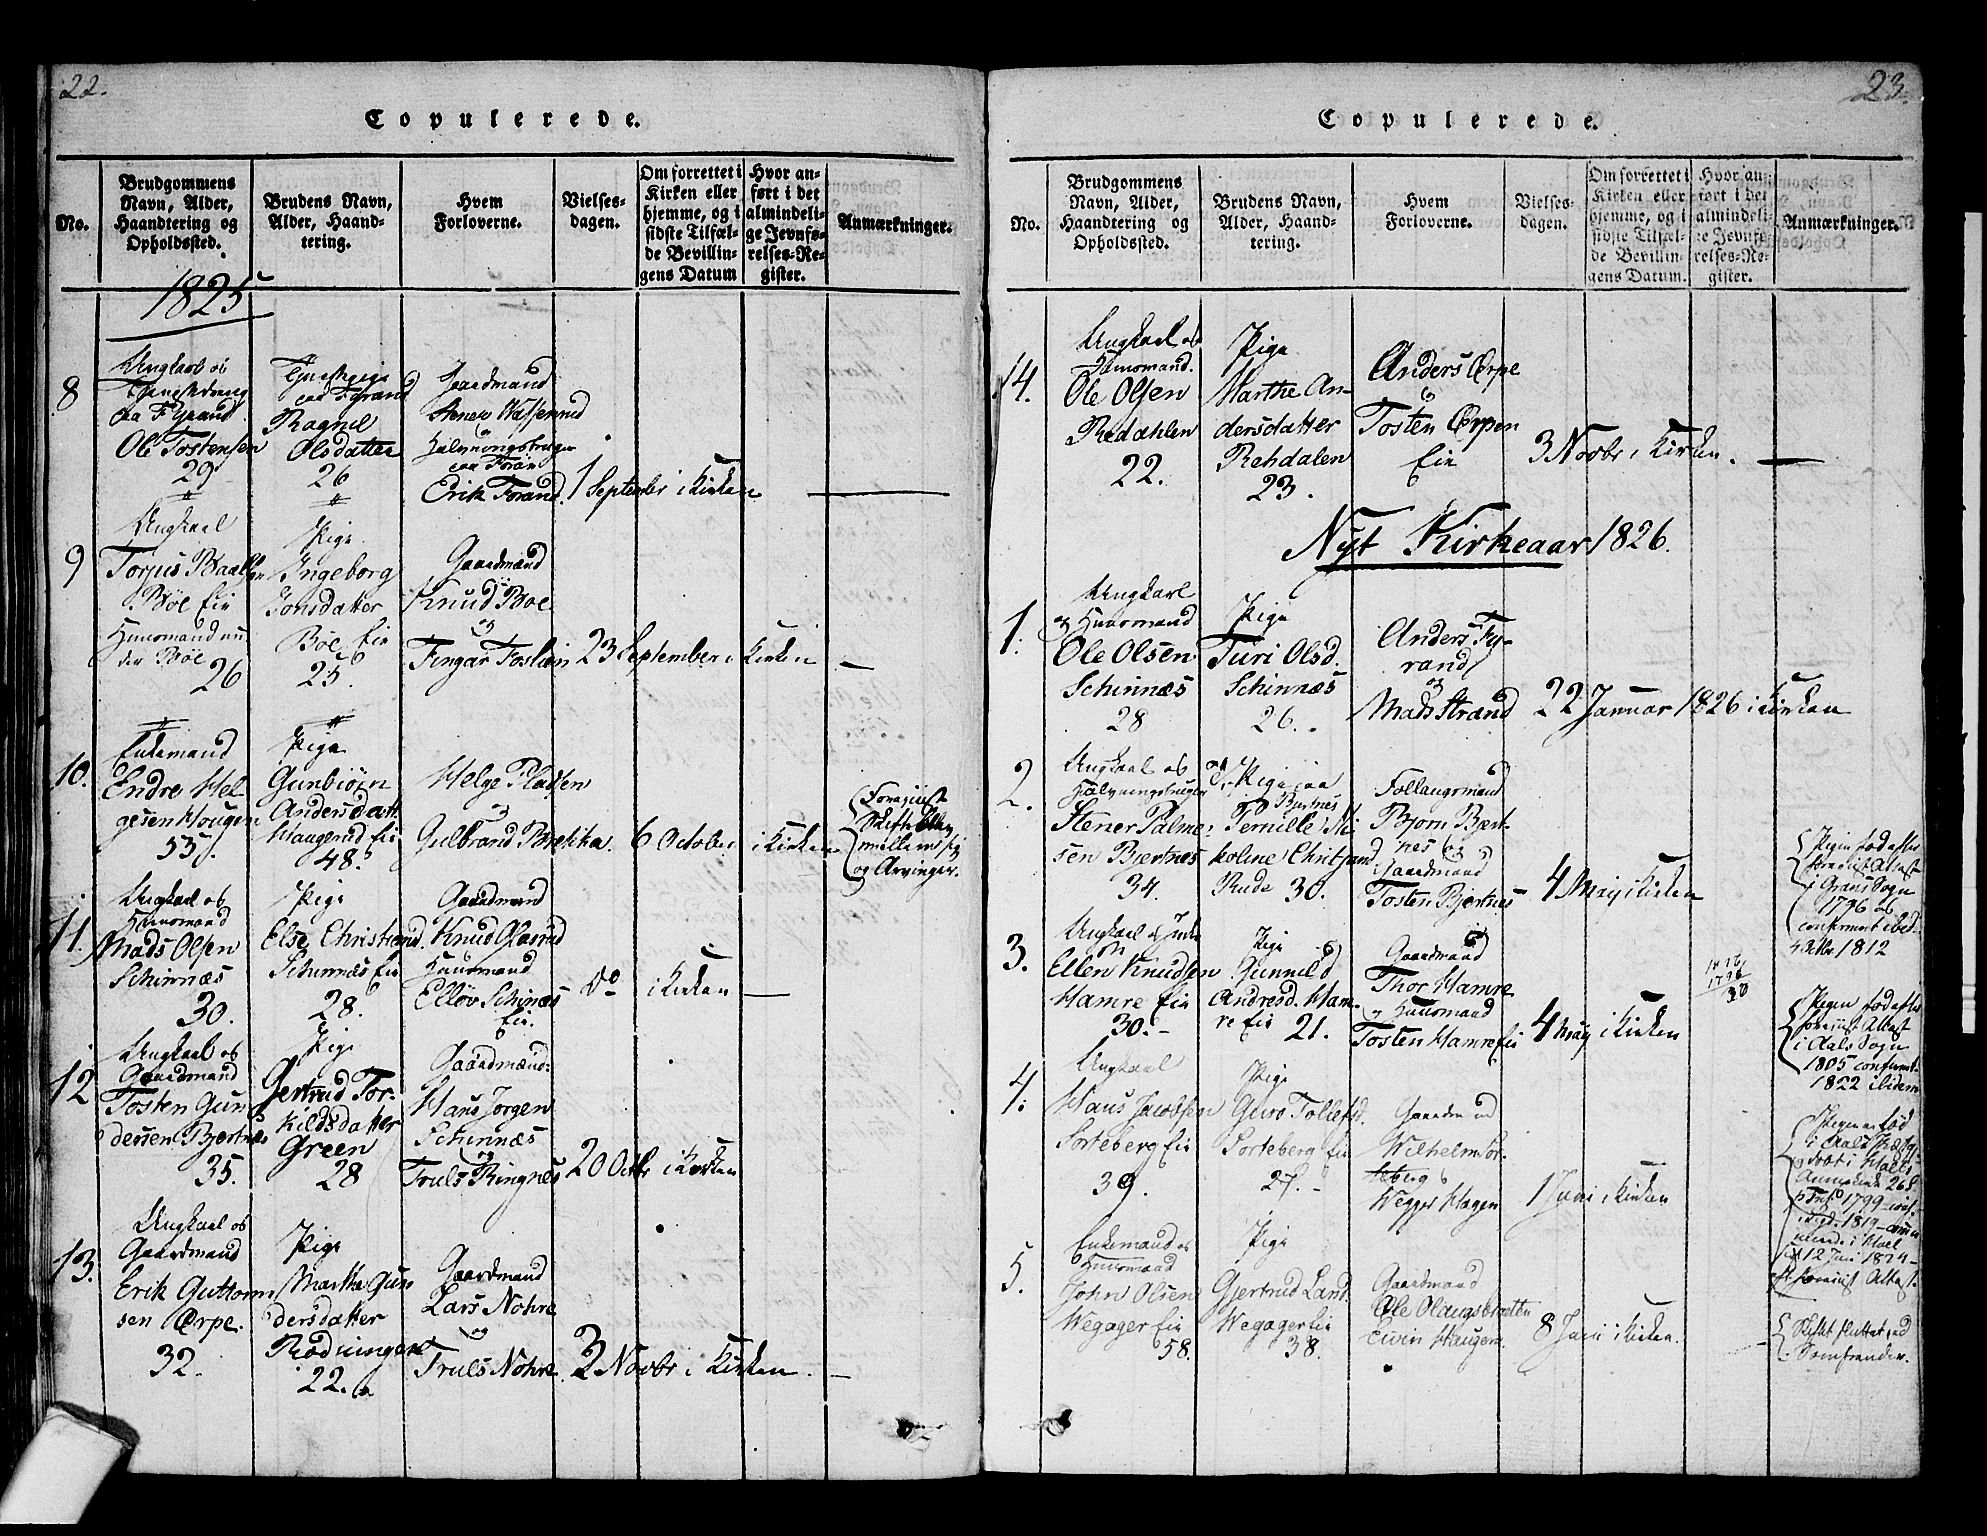 22.
Copulerede.
No.
Brudgommens
Navn, Alder,
Haandtering og
Opholdssted.
Brudens Navn,
Alder, Haand-
tering.
Hvem
Forloverne.
Vielses-
dagen.
Om forrettet i
Kirken eller
hjemme, og i
sidste Tilfæl-
de Bevillin-
gens Datum
Hvor an-
ført i det
almindeli-
ge Jevnfø-
relses-Re-
gister.
Anmærkninger.
1825
8
Ungkarl og
Ole Tostensen
29
Ragnil
Olsdatter
26
Gaardmand
og
Erik Forand.
1 September i Kirken
9
Ungkarl
Torjus Paalsen
Bøe Eie
Huusmand un-
der Bøe
26
Pige
Ingeborg
Jonsdatter
Bøe Eie
25.
Gaardmænd
Knud Bøe
og
Fingar Foslien
23 September i Kirken
10.
Enkemand
Endre Hel-
gesen Hougen
55.
Pige
Gunbiørn
Andersdatt
Haugerud Eie
48.
Helge Platten
og
Gulbrand Brekke.
6 October i Kirken
Foreviist
Skifte
mellem sig
og Arvinger.
11.
Ungkarl og
Huusmand
Mads Olsen
Schinnæs
30.
Pige
Else Christiansd
Schinnæs Eie
28.
Gaardmand
Knud Glasrud
Huusmand
Elløv Schinæs
Eie.
do
i Kirken
12
Ungkarl og
Gaardmand
Tosten Gun-
dersen Bjertnæs
35.
Pige
Gertrud Tor-
kildsdatter
Green
28
Gaardmænd:
Hans Jørgen
Schinnæs
og
Truls Ringnæs
20 Octbr i Kirken
13.
Ungkarl og
Gaardmand
Erik Guttorm-
sen Ørpe.
32.
Pige
Marthe Gun-
dersdatter
Rødningen
22.
Gaardmand
Lars Nohre
og
Truls Nohre
3 Novbr i Kirken.
23.
Copulerede.
No.
Brudgommens
Navn, Alder,
Haandtering og
Opholdssted.
Brudens Navn,
Alder, Haand-
tering.
Hvem
Forloverne.
Vielses-
dagen.
Om forrettet i
Kirken eller
hjemme, og i
sidste Tilfæl-
de Bevillin-
gens Datum.
Hvor an-
ført i det
almindeli-
ge Jevnfø-
relses-Re-
gister.
Anmærkninger.
14.
Ungkarl og
Huusmand.
Ole Olsen
Redahlen
22.
Pige
Marthe An-
dersdatter
Rehdalen
23.
Anders Ørpe
og
Tosten Ørpen
Eie
3 Novbr i Kirken.
Nyt Kirkeaar 1826.
1.
Ungkarl
og Huusmand
Ole Olsen
Schinnæs
28
Pige
Turi Olsd.
Schinnæs
26.
Anders Fy-
rand
og
Mads Strand
22 Januar 1826 i Kirken
2.
Ungkarl og
Stener Palme-
sen Bjertnes
34.
Pige paa
Bjertnes
Pernille Ni-
koline Christiansd
Rude 30.
Bjørn Bjert-
nes og
Gaardmand
Tosten Bjertnes
4 May i Kirken
Pigen fød efter
foreviist Attest
i Grans Sogn
1796 og
confirmert ibid.
1812
3.
Ungkarl og
Ellen Knudsen
Hamre Eie
30.
Pige
Gunnild
Andresd. Ham-
re Eie 21.
Gaardmand
Thor Hamre
og Huusmand
Tosten Hamre Eie
4 May i Kirken
1816
1796
20
Pigen fød efter
foreviist Attest
i Aals Sogn
1805 confirmt.
1822 ibidem
4.
Ungkarl
Hans Jacobsen
Sorteberg Eie
39.
Pige
Guro Tollefsd.
Sorteberg Eie
27.
Gaardmænd
Wilhelm Sor-
teberg
Wegger Hagen
1 Juni i Kirken
Pigen er fød
i Aals Præste-
1799
1819
12 Juni 1824
foreviist Attest.
5.
Enkemand og
Huusmand
John Olsen
Wegager Eie
58.
Pige
Gjertrud Land.
Wegager Eie
38.
Gaardmand
Ole Olaugsbraaten
Ewin Haugen.
8 Juni i Kirken.
Skift sluttet ved
Samfrænder.